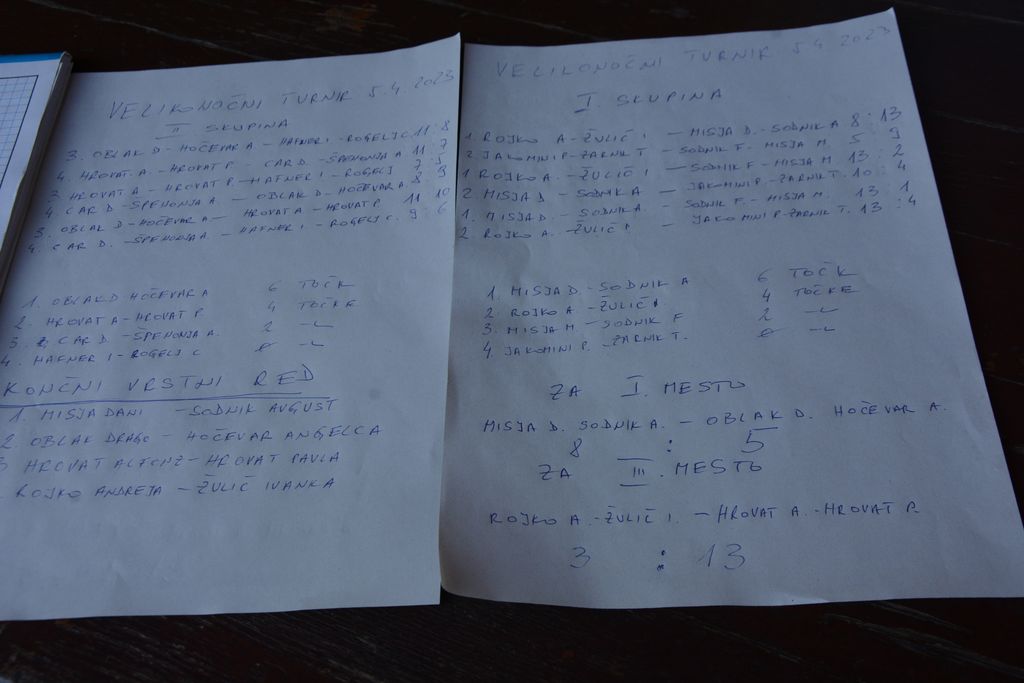 VELIKONOČNI TURNIR 5.4.2023
II SKUPINA
3. OBLAK D - HOČEVAR A - HAFNER I - ROGELJ C. 11 : 8
4. HROVAT A. - HROVAT P. - CAR D. - ŠPEHONJA A 11 : 7
HROVAT A - HROVAT P. - HAFNER I - ROGELJ 7 : 5
4. CAR D. - ŠPEHONJA A - OBLAK D - HOČEVAR A. 8 : 9
3. OBLAK D - HOČEVAR A - HROVAT A - HROVAT P. 11 : 10
4. CAR D. - ŠPEHONJA A. - HAFNER I - ROGELJ C. 9 : 6
1. OBLAK D HOČEVAR A 6 TOČK
2. HROVAT A - HROVAT P. 4 TOČKE
3. CAR D. - ŠPEHONJA A. 2
4. HAFNER I - ROGELJ C 0
KONČNI VRSTNI RED
1. MISJA DANI - SODNIK AVGUST
2 OBLAK DRAGO - HOČEVAR ANGELCA
3 HROVAT ALFONZ - HROVAT PAVLA
ROJKO ANDREJA - ŽULIČ IVANKA
VELIKONOČNI TURNIR 5.4 2023
I. SKUPINA
1. ROJKO A - ŽULIČ I - MISJA D. - SODNIK A 8 : 13
2. JAKOMINI P - ŽARNIK T - SODNIK F - MISJA M. 5 9
1 ROJKO A. - ŽULIČ I - SODNIK F - MISJA M. 13 : 2
2. MISJA D - SODNIK A - JAKOMINI P. - ŽARNIK T. 10 : 4
1. MISJA D. - SODNIK A. - SODNIK F. - MISJA M. 13 1
2. ROJKO A. - ŽULIČ I. - JAKOMINI P - ŽARNIK T. 13 : 4
1. MISJA D. - SODNIK A 6 TOČK
2. ROJKO A. - ŽULIČ I. 4 TOČKE
3. MISJA M. - SODNIK F 2
4. JAKOMINI P. - ŽARNIK T. 0
ZA I. MESTO
MISJA D. SODNIK A. - OBLAK D. HOČEVAR A.
8 : 5
ZA III. MESTO
ROJKO A. - ŽULIČ I. - HROVAT A. - HROVAT P.
3 : 13